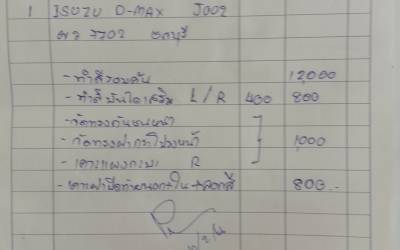 1 ISUZU D-MAX J002
ผจ 7702 ชลบุรี
- ทำสีรอบคัน 12,000
- ทำสีบันไดเสริม L/R 400 800
- จัดทรงกันชนหน้า
- จัดทรงฝากระโปรงหน้า 1,000
- เคาะแผงกระบะ R
- เคาะฝาปิดท้ายนอก+ใน 800.-